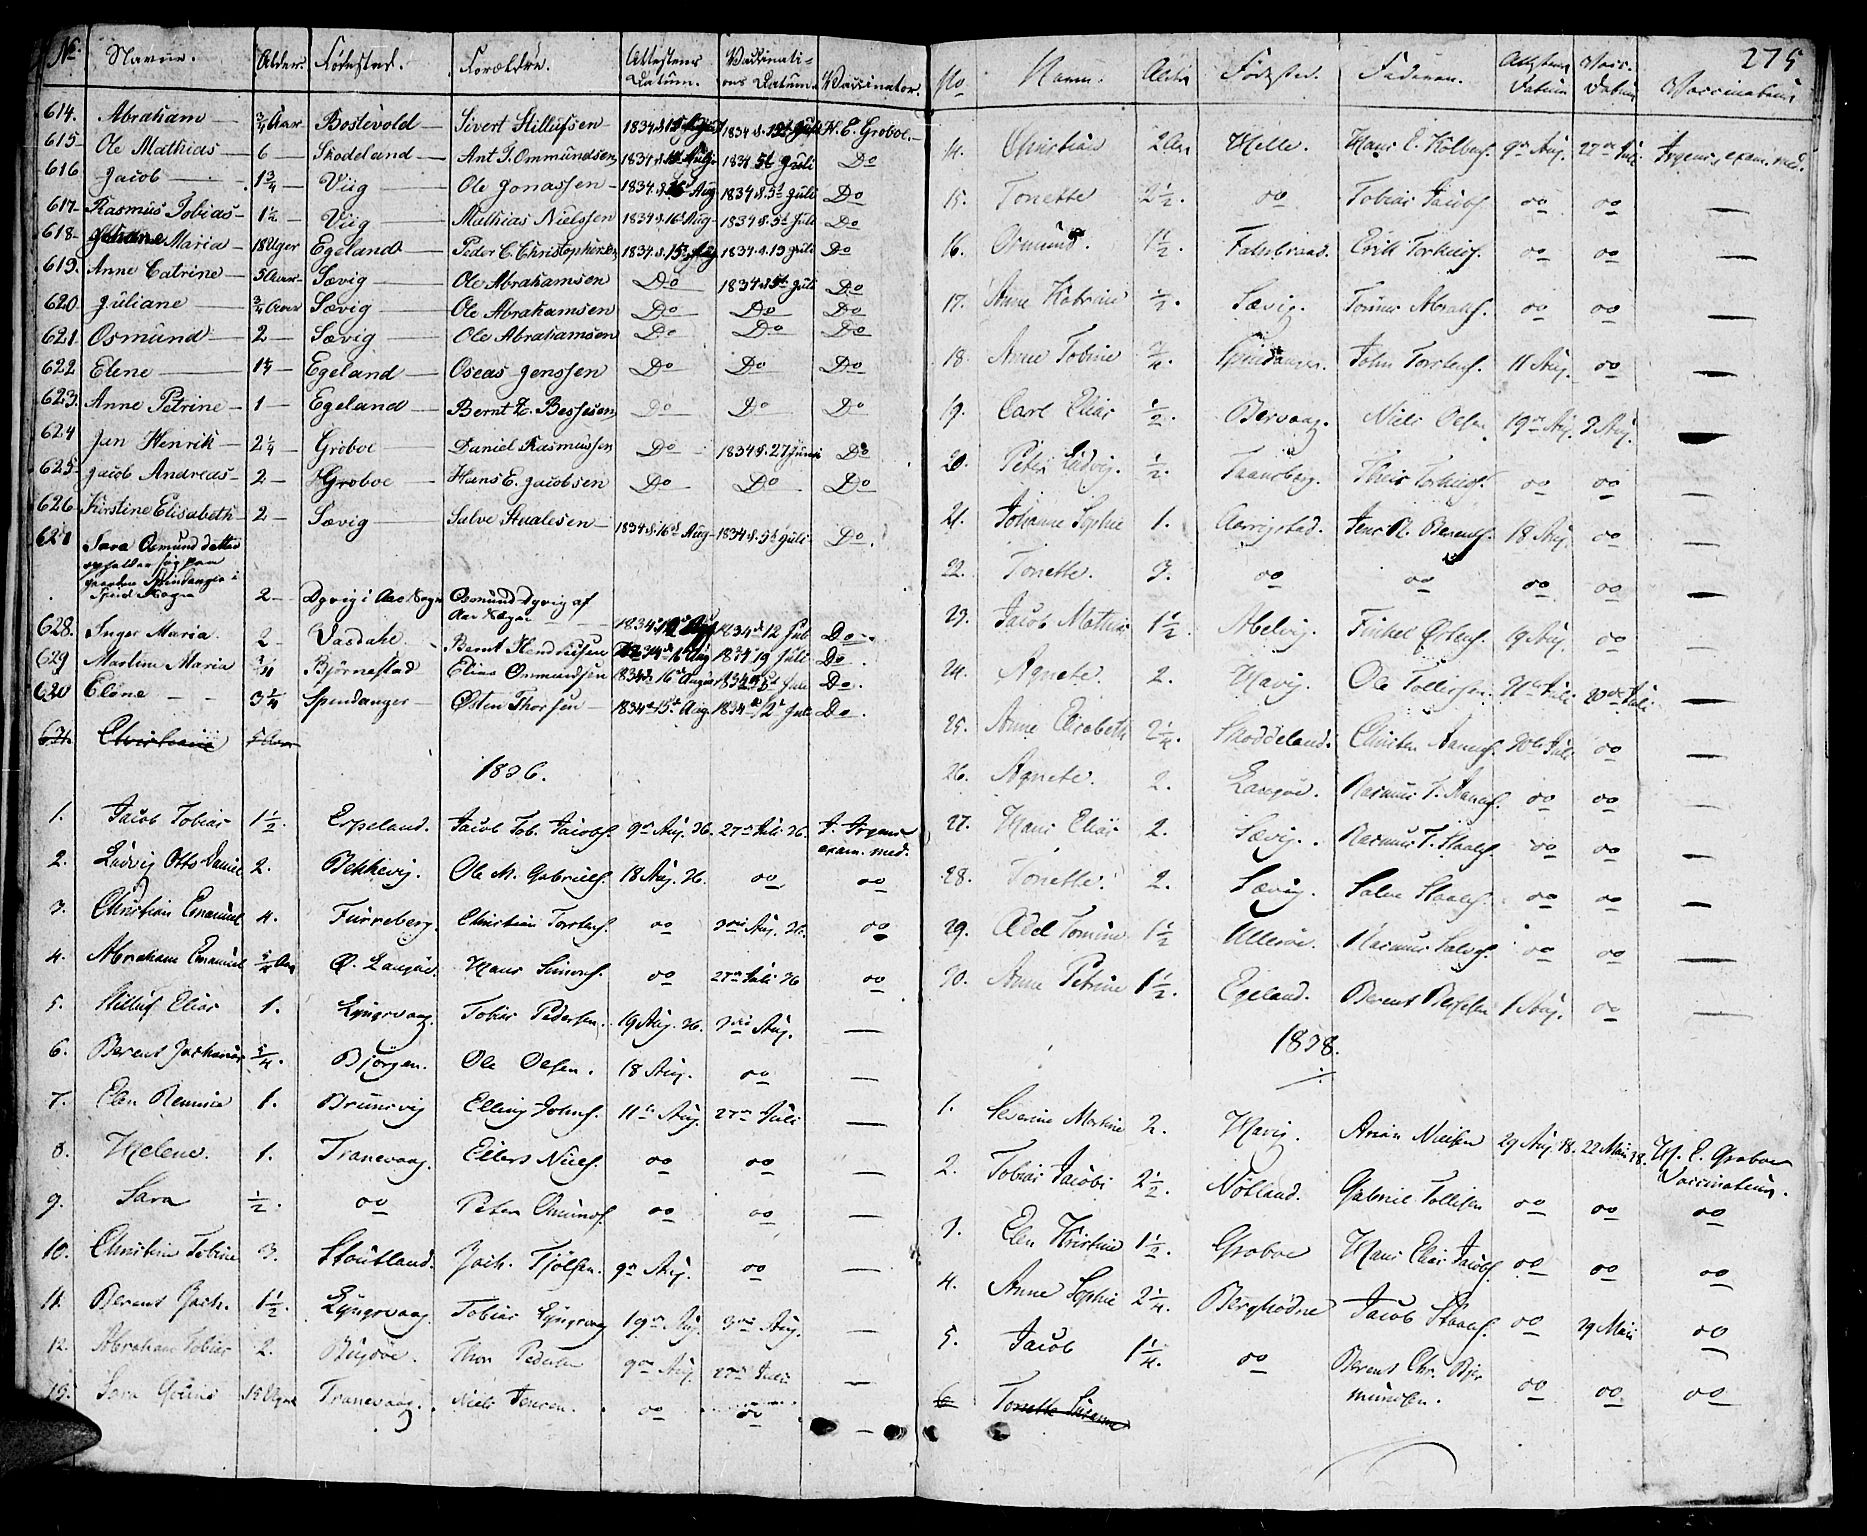 No. Navne. Alder Fødested. Forældre. Attestens Datum. Vaksinations Datum. Vaksinator.
614. Abraham — 3/4 Aar — Bostevold — Sivert Stillufsen — 1834 d. 15 1834 d. H. E. Groboe.
615 Ole Mathias — 6 — Skodeland — Ant. T. Ommundsen 1834 d. 1834 5t Juli Do
616 Jacob — 1 3/4 — Viig — Ole Jonassen — 1834 d. Aug 1834 d. 5t Juli Do
617 Rasmus Tobias — 1 1/2 — Viig — Mathias Nielssen 1834 d. 16t Aug — 1834 d. 5t Juli Do
618 Maria — 18 Uger Egeland — Peder C. Christophersen 1834 d. 15t Aug 1834 d. 13 Juli Do
619. Anne Catrine — 5 Aar — Sævig — Ole Abrahamsen Do 1834 d. 5t Juli Do
620 Juliane — 3/4 Aar Sævig — Ole Abrahamsen Do Do Do
621. Osmund — 2 — Sævig — Ole Abrahamsen Do Do Do
622 Elene — 1 1/4 — Egeland — Oseas Jenssen Do Do Do
623. Anne Petrine — 1 — Egeland — Bernt Z. Bessesen Do Do Do
624 Jan Henrik — 2 1/4 — Groboe — Daniel Rasmussen Do 1834 d. 27 Juni Do
625 Jacob Andreas — 2 — Groboe — Hans E. Jacobsen Do Do Do
626 Kirstine Elisabeth — 2 — Sævig — Salve Stualesen — 1834 d. 16t Aug — 1834 d. 5t Juli — Do.
627 Sara Osmunddatter
opholder sig paa
gaarden Spindanger i
Spind Sogn 2 — Dyvig i Aae Sogn Osmund Dyvig af
Aae Sogn 1834 1834 12 Jul Do
628. Inger Maria 2 — Dasdahl Bernt 1834 16 Aug 1834 19 Juli Do
629 Martine Maria 3/4 Bjørnestad Elias Ommundsen 1834 16 August 1834 5t Juli Do.
630 Elene — 3 1/4 Spendanger — Østen Thorsen — 1834 15t Aug. 1834 12 Juli Do.
631. Christiane 5 Aar
1836.
1. Jacob Tobias 1 1/2. Espeland. Jacob Tob. Jacobs. 9de Aug. 36. 27de Juli 36. J. Irgens exam. med.
2. Ludvig Otto Daniel 2. Bekkevig. Ole M. Gabriels. 18 Aug. 36. do do
3. Christian Emanuel 4. Furreberg. Christian Torstens. do 3die Aug. 36. do
4. Abraham Emanuel 3/4 Aar O. Langøe. Hans Simons. do 27de Juli 36 do
5. Stilluf Elias 1. Lyngsvaag. Tobias Pedersen. 19 Aug. 36. 3die Aug. —
6. Berent Zacharias 5/4. Bjørgen. Ole Olsen. 18 Aug. do —
7. Elen 1. Brunsvig Elling Johns. 11te Aug. 27de Juli —
8. Helene. 1. Tranevaag. Eilert Niels. do do —
9. Sara 1/2. do Peter Omunds. do do —
10. Christine Tobine 3. Stoutland. Zach. Tjølsen. 9de Aug. do —
11. Berent Zach. 1 1/2. Lyngsvaag. Tobias Lyngsvaag 19de Aug. 3die Aug. —
12. Abraham Tobias 2. Bugøe. Thor Pedersen 9de Aug. 27de Juli —
13. Sara 15 Uger Tranevaag. Niels Jensen. do do —
275
No Navn. Alder Fødested. Faderen. Attestens Datum Vacc. Datum Vaccinateur
14. Christian 2 Aar Helle. Hans E. 9de Aug. 27de Juli Irgens, exam. med.
15. Tonette 2 1/2. do Tobias Jacobs. do do —
16. Osmund. 1 1/2. Erik Torkels. do do —
17. Anne Katrine 1/2. Sævig. Tønnes Abrahs. do do —
18. Anne Tobine 3/4. Spindanger. John Torstens. 11 Aug. do —
19. Carl Elias 1/2. Bervaag. Niels Olsen 19de Aug. 3 Aug. —
20. Peter Ludvig. 1/2. Torkels. do do —
21. Johanne Sophie 1. Aarrigstad. Jens R. Berents. 18 Aug. do —
22. Tonette. 3. do do do do —
23. Jacob Mathias 1 1/2. Melvig. 19 Aug. do —
24. Agnete. 2. Havig. Ole Tollefsen. Juli 23de Juli —
25. Anne Elisabeth 2 1/4. Skoddeland. Christen Aanens. 30te Juli do —
26. Agnete. 2. Langøe. Rasmus T. do do —
27. Hans Elias 2. Sævig. Rasmus T. Staals. do do —
28. Tonette. 2. Sævig. Salve Staals. do do —
29. Adel Tomine 1 1/2 Ullerøe. Rasmus Salvs. do do —
30. Anne Petrine 1 1/2. Egeland. Berent Bessesen 1 Aug. do —
1838.
1. Severine Martine 2. Havig. Arian Nielsen 29 Aug. 38. 22 Mai 38. H. E. Groboe Vaccinateur.
2. Tobias Jacob 2 1/2. Nøtland. Gabriel Tollefsen do do do
3. Elen Kristine 1 1/2. Groboe Hans Elias Jacobs. do do do
4. Anne Sophie 2 1/4. Berghødne Jacob Staals. do 29 Mai do
5. Jacob 1 1/4. do Berent Chr. do do do
6 Tonette Susanne